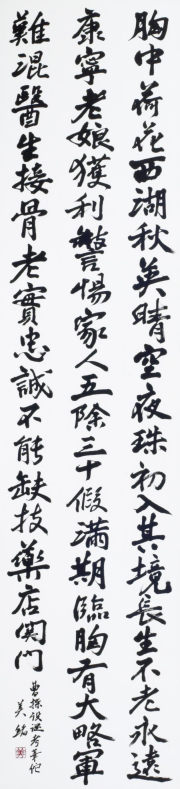 胸中荷花西湖秋英晴空夜珠初入其境長生不老永遠
康寧老娘獲利警惕家人五除三十假滿期臨胸有大略軍
難混醫生接骨老實忠誠不能缺技藥店関門
曹操设谜考華佗
美銘